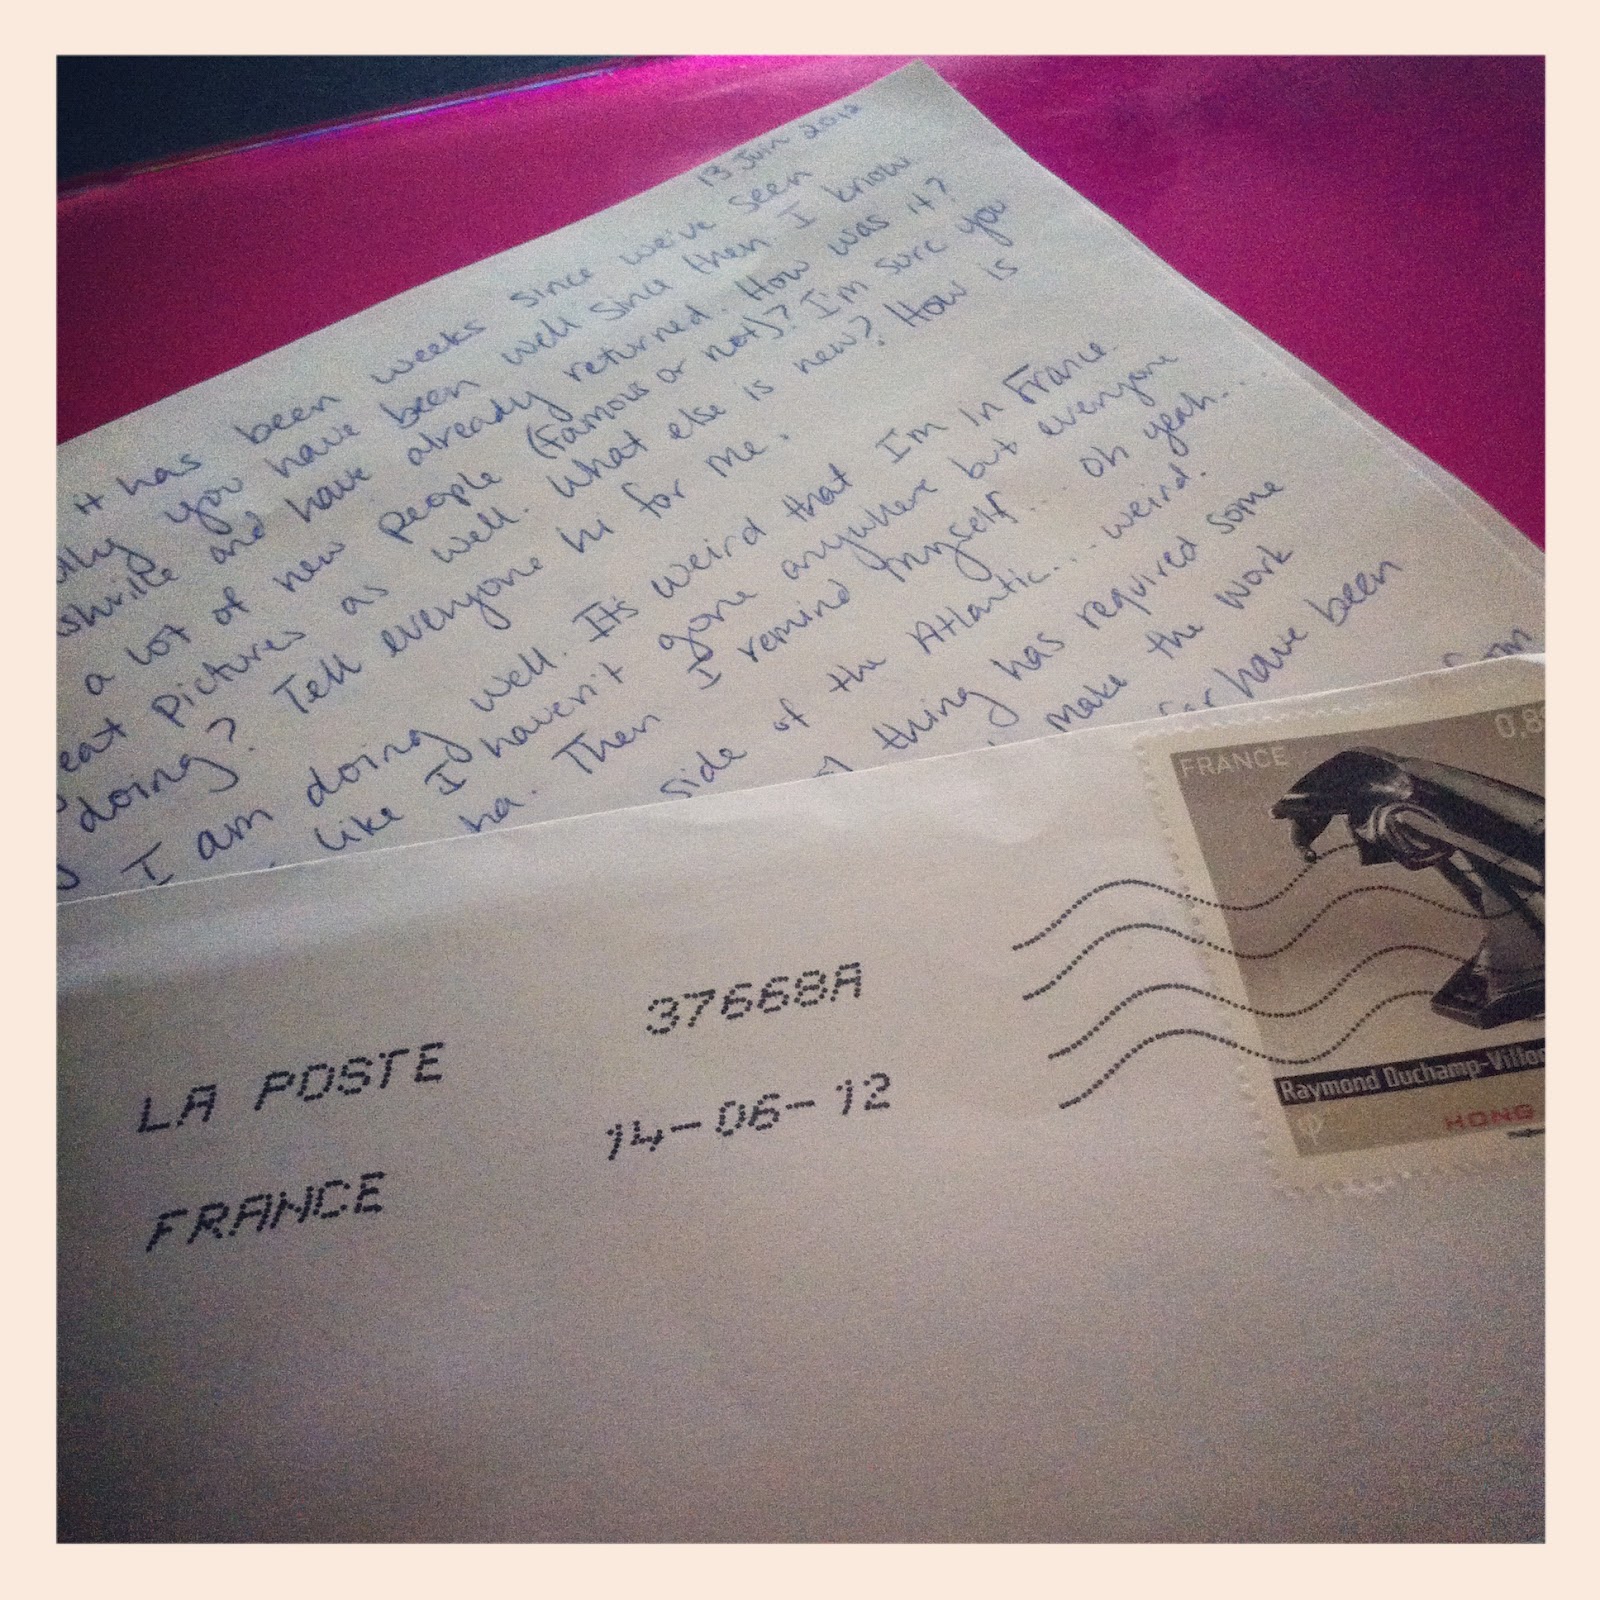 13 Juin 2012
it has been weeks since we've seen
you have been well since then. I know
and have already returned. How was it?
a lot of new people (famous or not)? I'm sure you
pictures as well. What else is new? How is
doing? Tell everyone hi for me.
I am doing well. It's weird that I'm in France.
like I haven't gone anywhere but everyone
ha. Then I remind myself... oh yeah....
side of the Atlantic... weird.
thing has required some
make the work
have been
FRANCE 0,8
37668A
LA POSTE
14-06-12
FRANCE
Raymond Duchamp-Villon
HONG